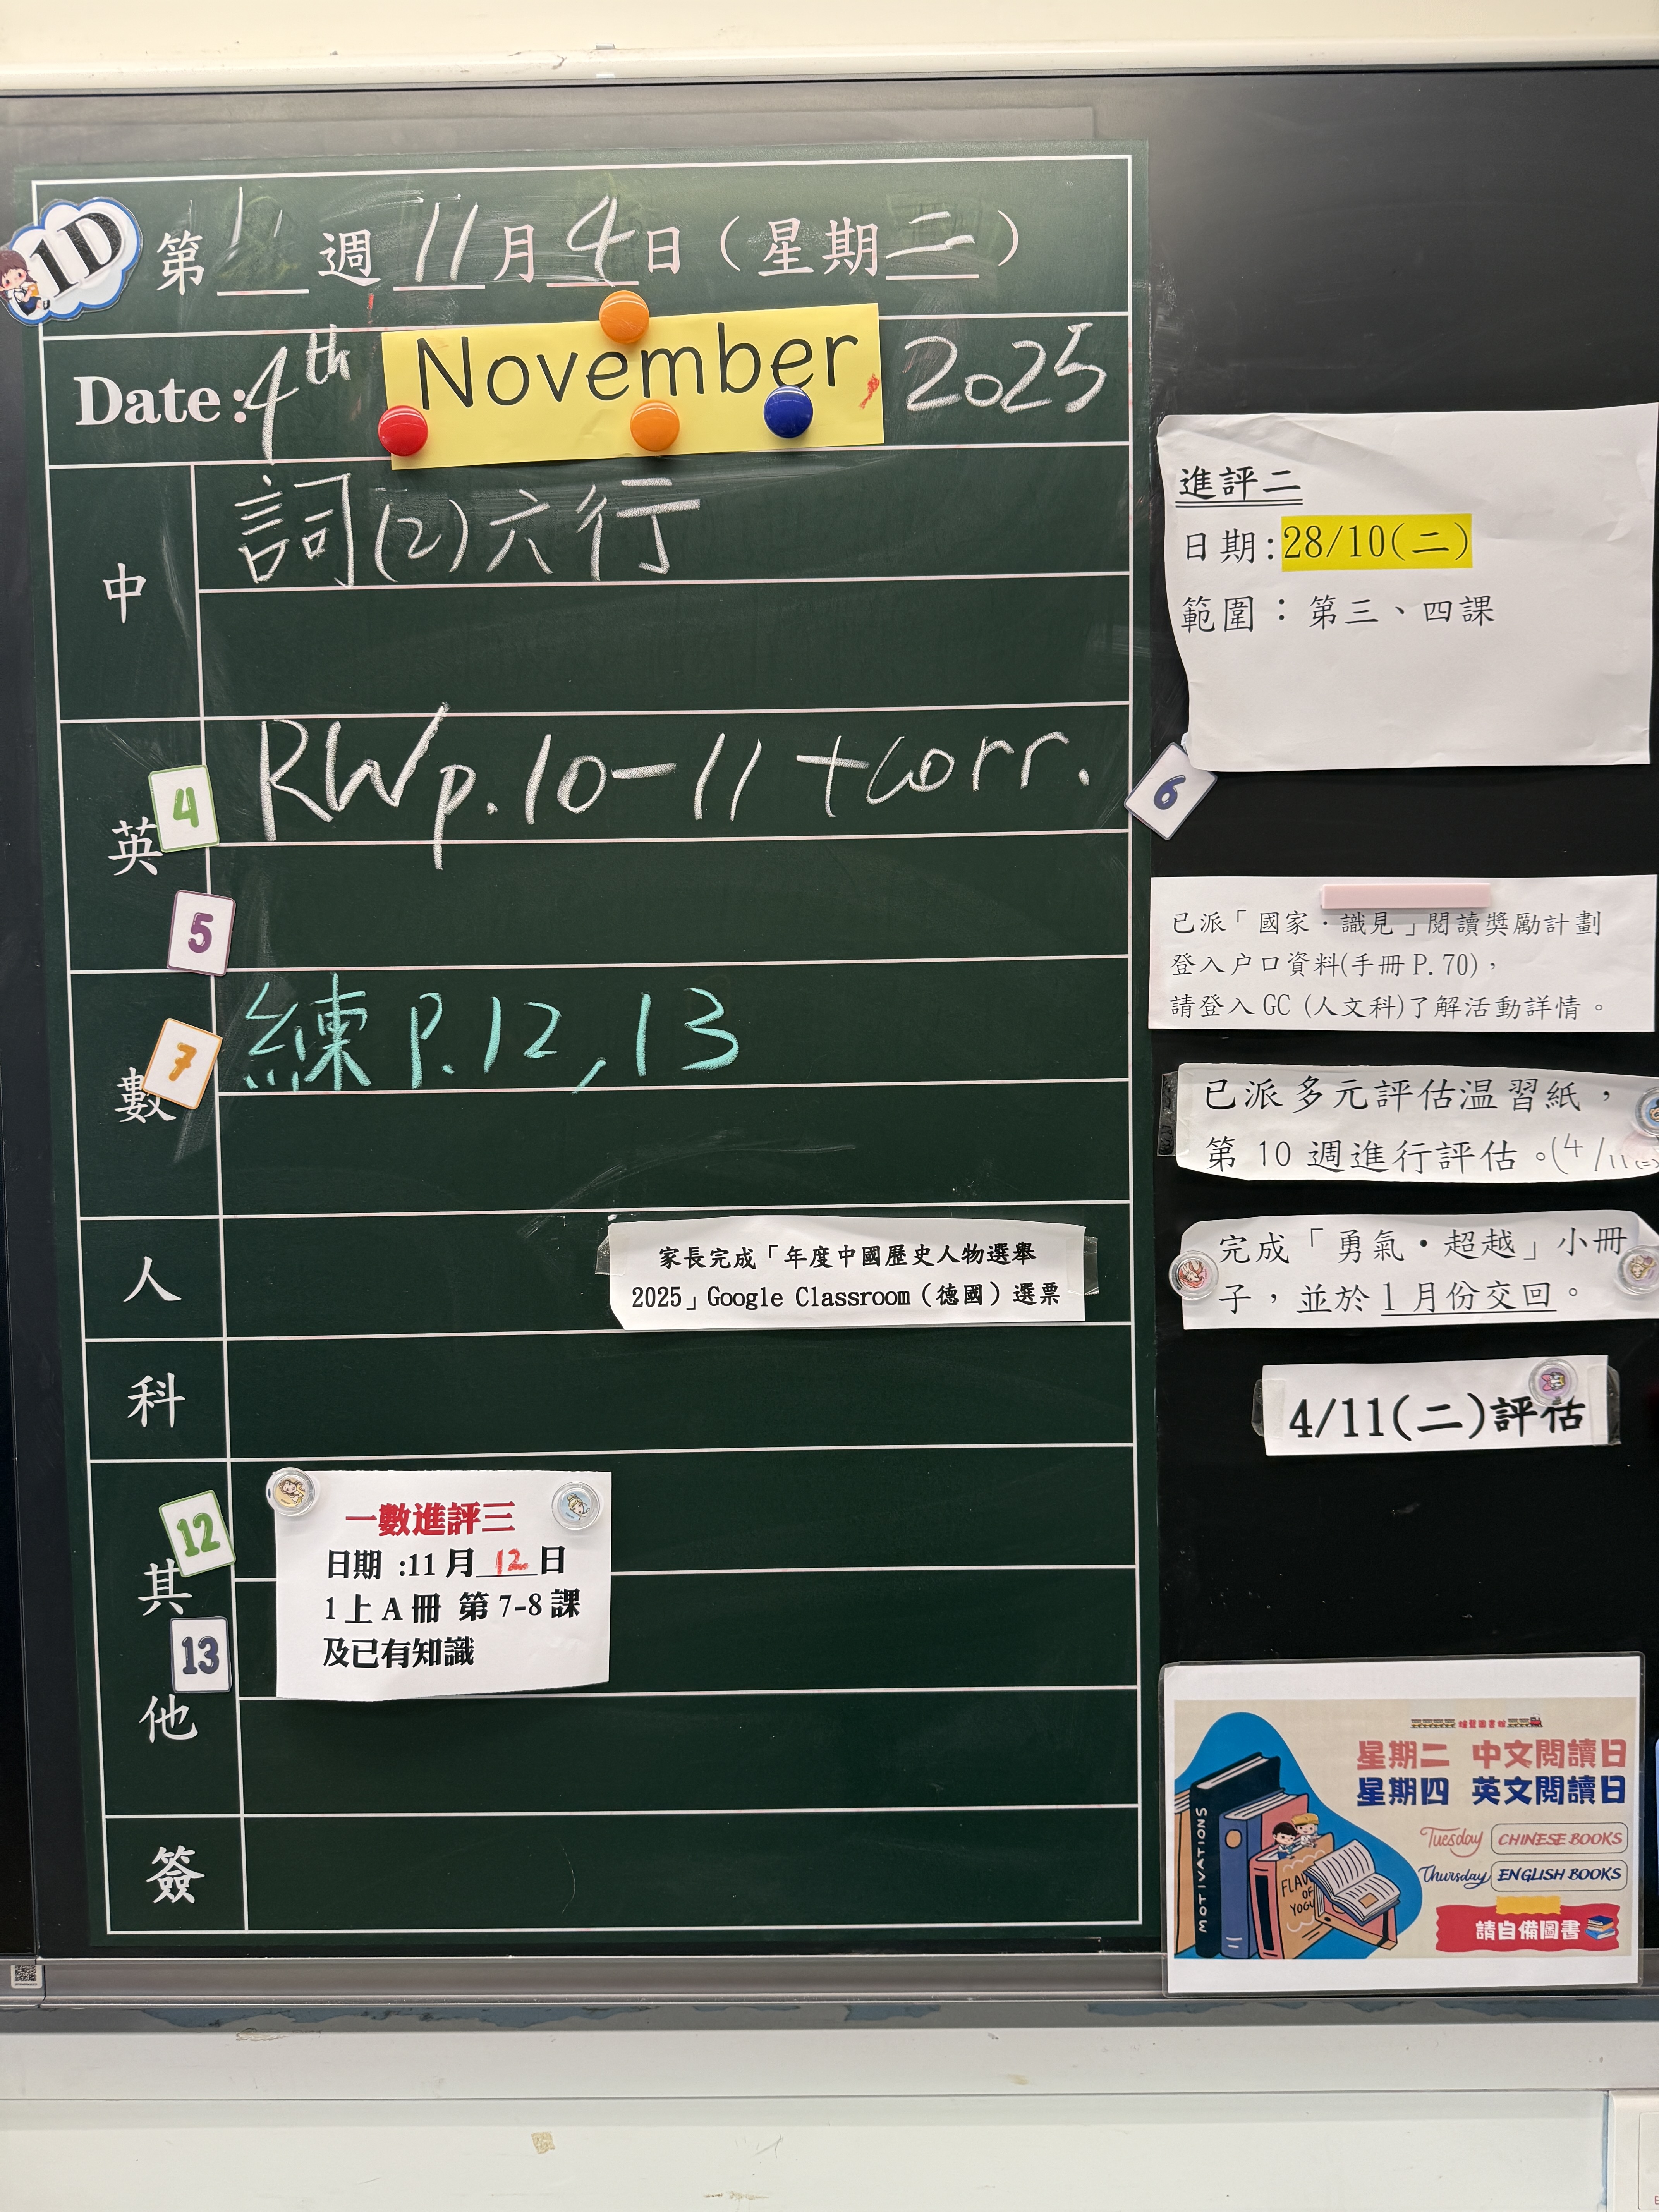 1D
第 11 週 11 月 4 日（星期二）
Date: 4th November 2025
中
詞(2)六行
英
4
5
RW p.10-11 + corr.
數
7
練 P.12, 13
人
家長完成「年度中國歷史人物選舉
2025」Google Classroom（德國）選票
科
其他
12
13
一數進評三
日期 :11 月 12 日
1 上 A 冊 第 7-8 課
及已有知識
簽
進評二
日期:28/10(二)
範圍：第三、四課
6
已派「國家·識見」閱讀獎勵計劃
登入户口資料(手冊 P.70)，
請登入 GC (人文科)了解活動詳情。
已派多元評估温習紙，
第 10 週進行評估。(4/11(二)
完成「勇氣·超越」小冊
子，並於 1 月份交回。
4/11(二)評估
星期二 中文閱讀日
星期四 英文閱讀日
Tuesday CHINESE BOOKS
Thursday ENGLISH BOOKS
請自備圖書
MOTIVATIONS